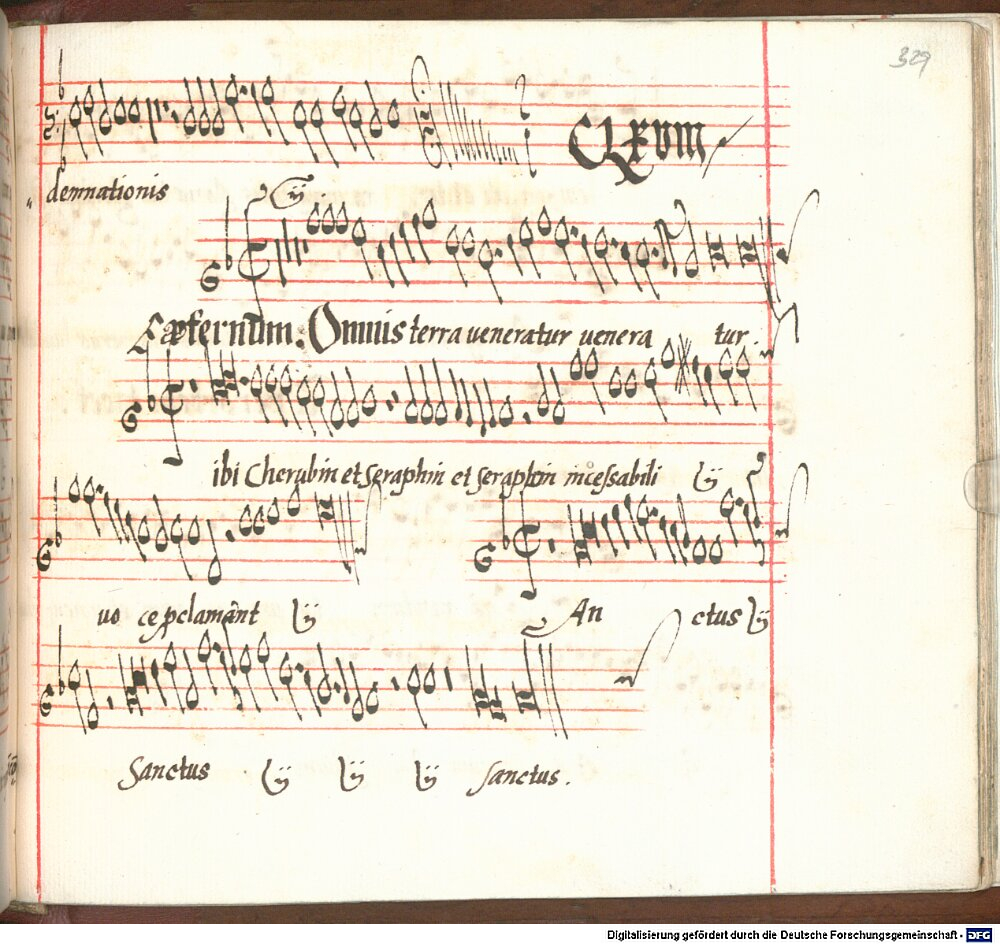 329
CLXVIII
demnationis
Omnis terra ueneratur uenera tur
ibi Cherubin et Seraphin et seraphin incessabili ij
uo ce pclamānt ij An ctus ij
Sanctus ij ij ij sanctus.
Digitalisierung gefördert durch die Deutsche Forschungsgemeinschaft - DFG